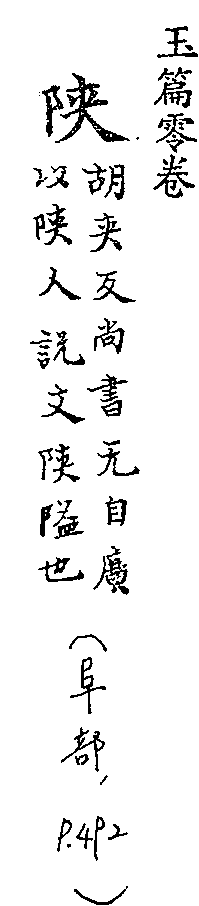 玉篇零卷
陜
胡夾反尚書无自廣
以陜人說文陜隘也
(阜部, P.492)